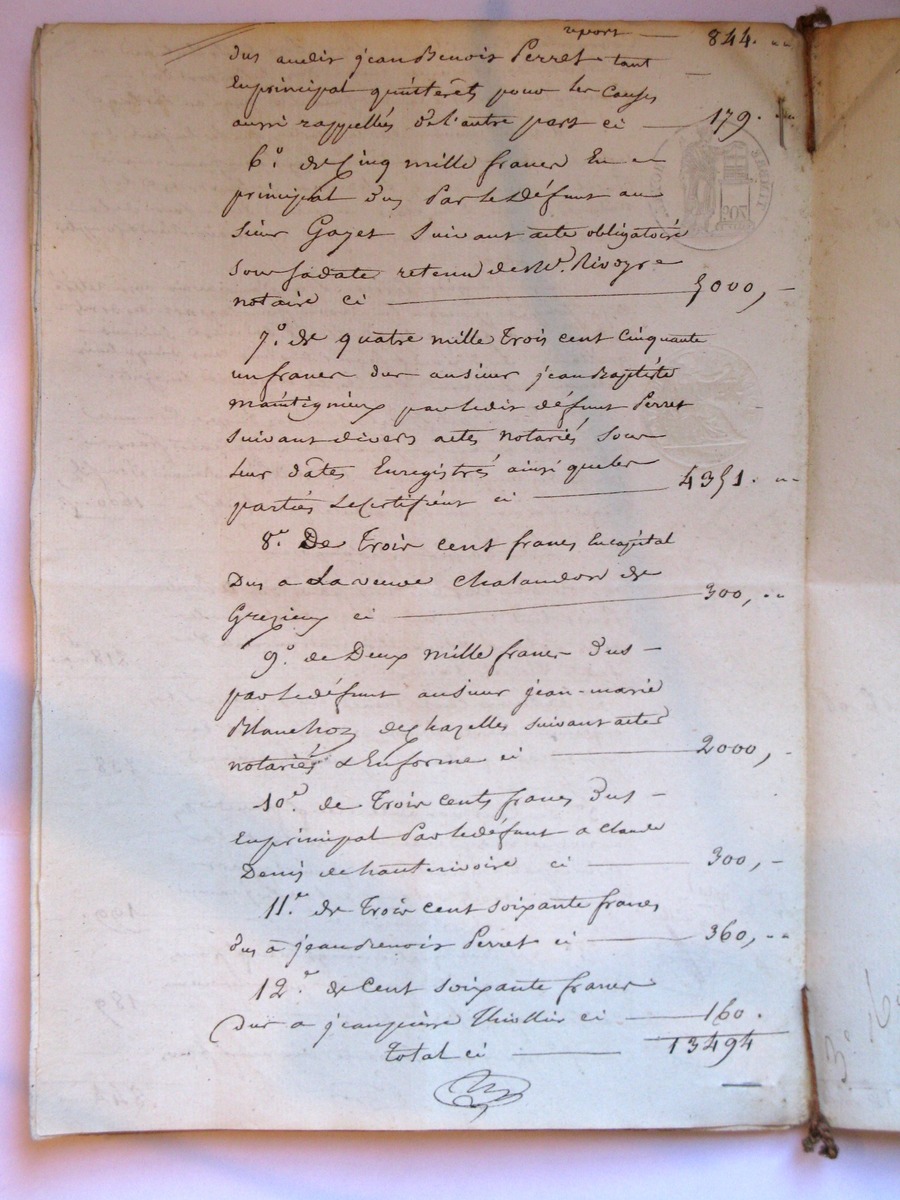 report — 844. "
dus audit jean Benoit Perret tant
En principal qu'intérêts pour les causes
aussi rappellés d'el'autre part ci — 179. "
6.° de Cinq mille francs En
principal dus Par le Défunt au
Sieur Gayet Suivant acte obligatoire
Sous sa date retenu de Me. Rivoyre
notaire ci — 5000, -
7.° de quatre mille Trois cent Cinquante
un francs dus au sieur jean Baptiste
par ledit défunt Perret
Suivant divers actes notariés Sous
leur dâtes Enregistrés ainsi que les
partiés Le Certifient ci — 4351. "
8.° De Trois cent francs En capital
Dus a La veuve Chalandon de
Grezieux ci — 300, "
9.° de Deux mille francs dus -
par le défunt au sieur jean-marie
Blanchoz de Chazelles suivant actes
notariés & En forme ci — 2000, -
10.° de Trois Cents francs dus -
En principal Par le défunt a Claude
Denis de hauterivoire ci — 300, -
11.e de Trois cent soixante francs
dus a jean Benoit Perret ci — 360, "
12.e de Cent soixante francs
dus a jean pierre Thiollier ci — 160.
Total ci — 13494